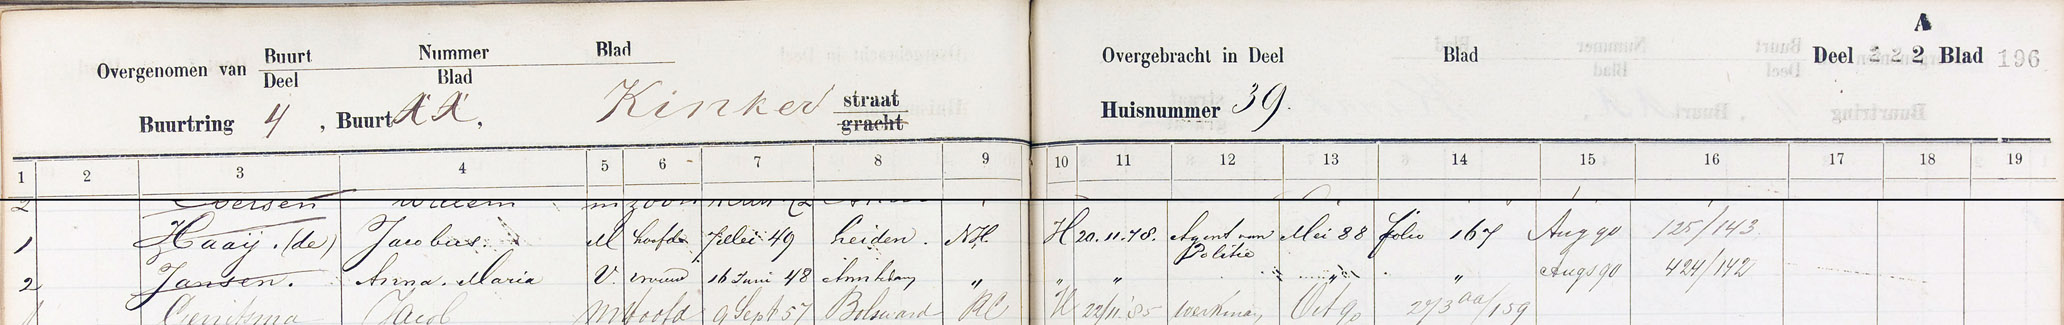 A
Overgenomen van Buurt Nummer Blad Overgebracht in Deel Blad Deel 2 2 2 Blad 196
Deel Blad
Buurtring 4, Buurt XX, Kinker straat Huisnummer 39.
gracht
1 2 3 4 5 6 7 8 9 10 11 12 13 14 15 16 17 18 19
2 Willem m zoon
1 Haaij. (de) Jacobus M hoofd 7 Mei 49 Leiden. NH. H 20.11.78. Agent van Politie Mei 88 folio 167 Aug 90 125/143
2 Jansen. Anna. Maria V. vrouw 16 Juni 48 Arnhem " " " " " Aug 90 424/142
1 Gerritsma Jacob M Hoofd 9 Sept 57 Bolsward RC H 22/11 '85 werkman Oct 90 27/3 aa/159